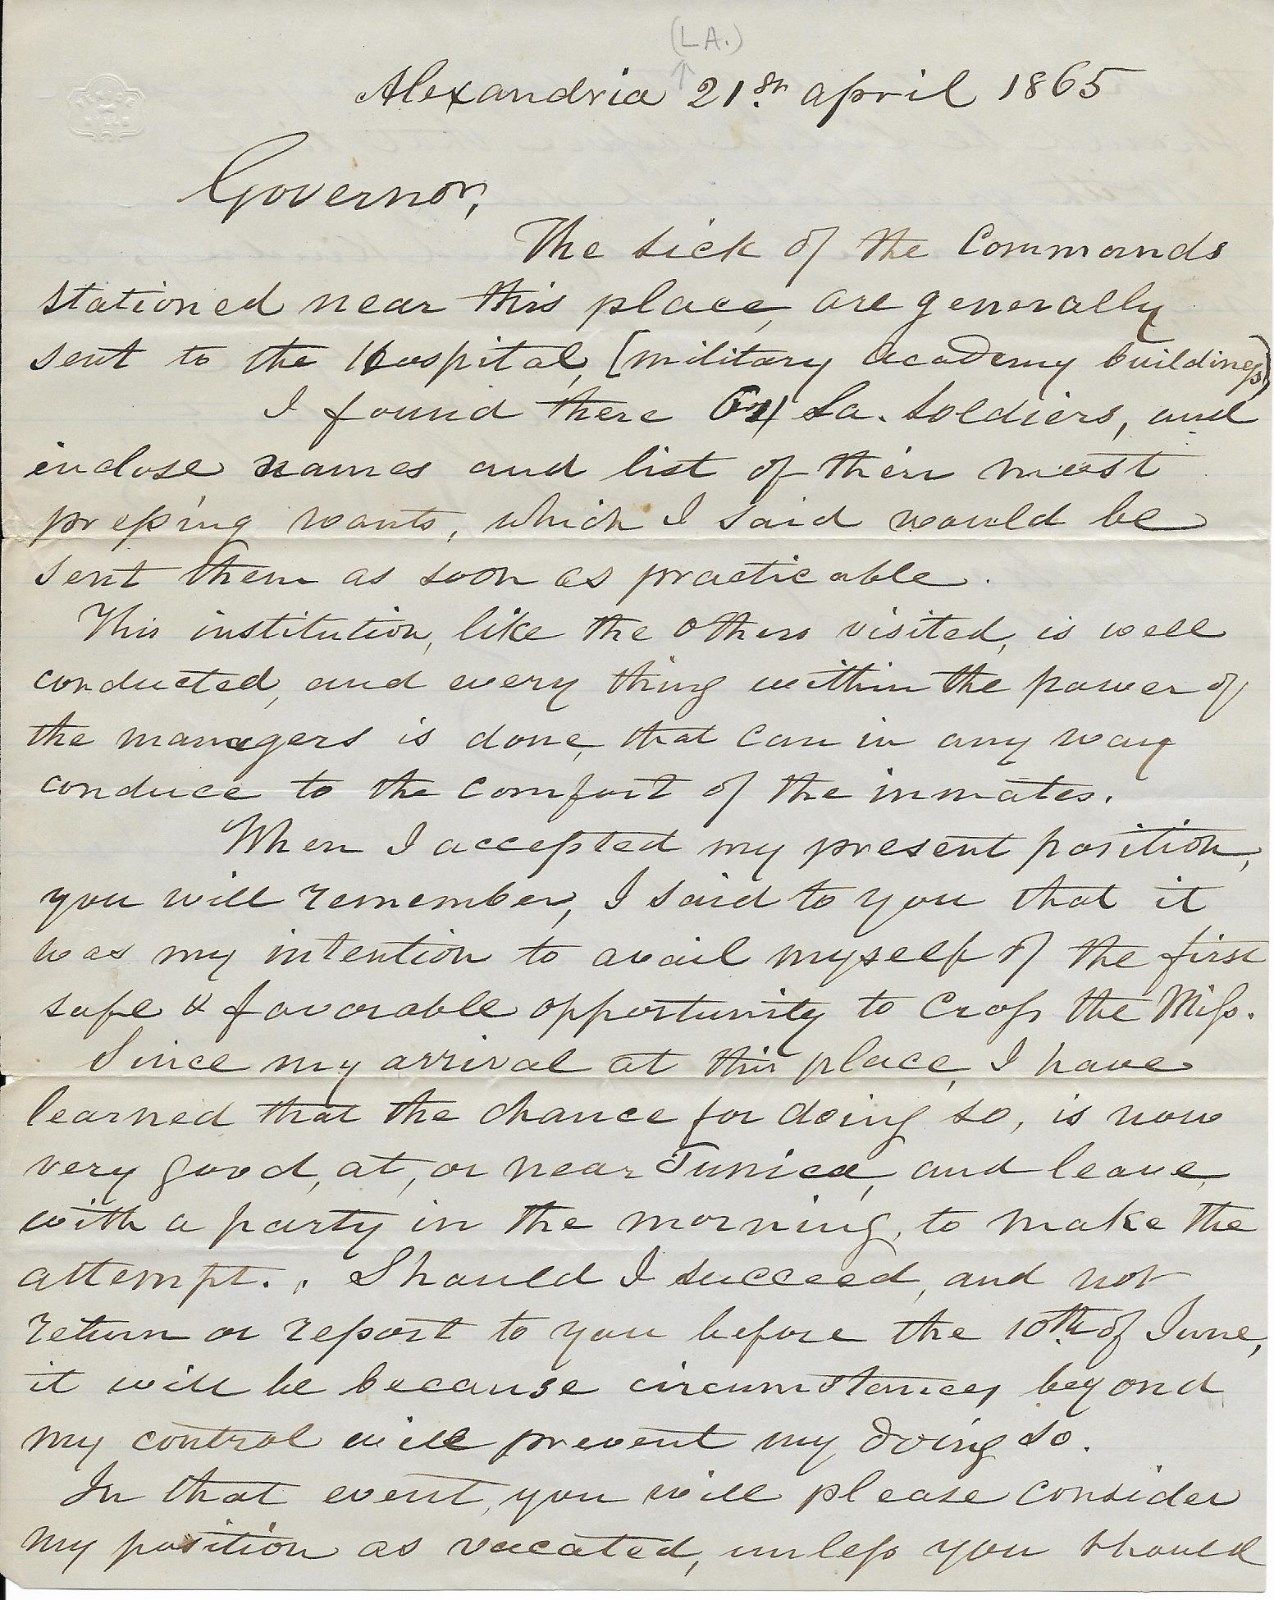 (LA.)
Alexandria 21st april 1865
Governor,
The sick of the Commands
stationed near this place, are generally
sent to the Hospital, [military academy buildings)
I found there La. Soldiers, and
inclose names and list of their most
pressing wants, which I said would be
sent them as soon as practicable.
This institution, like the others visited, is well
conducted, and every thing within the power of
the managers is done, that can in any way
conduce to the comfort of the inmates.
When I accepted my present position,
you will remember, I said to you that it
was my intention to avail myself of the first
safe & favorable opportunity to Cross the Miss.
Since my arrival at this place, I have
learned that the chance for doing so, is now
very good, at, or near Tunica, and leave
with a party in the morning, to make the
attempt. Should I succeed, and not
return or report to you before the 10th of June,
it will be because circumstances beyond
my control will prevent my doing so.
In that event, you will please consider
my position as vacated, unless you should